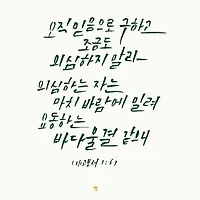 오직 믿음으로 구하고
조금도
의심하지 말라
의심하는 자는
마치 바람에 밀려
요동하는
바다 물결 같으니
(야고보서 1:6)